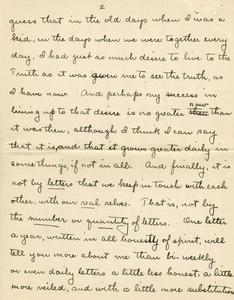 2
guess that in the old days when I was a
kid, in the days when we were together every
day, I had just as much desire to live to the
Truth as it was given me to see the truth, as
I have now. And perhaps my success in
living up to that desire is no greater now than
it was then, although I think I can say
that it is, and that it grows greater daily in
some things, if not in all. And finally, it is
not by letters that we keep in touch with each
other, with our real selves. That is, not by
the number or quantity of letters. One letter
a year, written in all honesty of spirit, will
tell you more about me than bi-weekly
or even daily letters a little less honest, a little
more veiled, and with a little more substitution